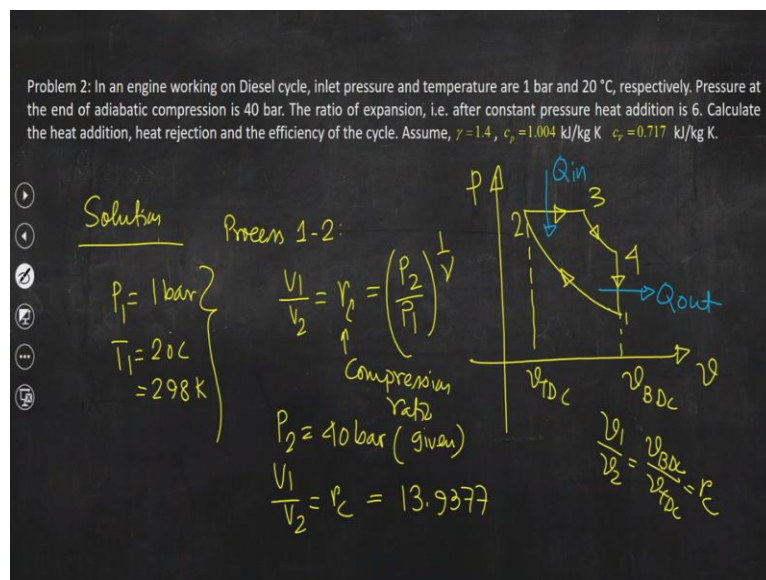 Problem 2: In an engine working on Diesel cycle, inlet pressure and temperature are 1 bar and 20 °C, respectively. Pressure at
the end of adiabatic compression is 40 bar. The ratio of expansion, i.e. after constant pressure heat addition is 6. Calculate
the heat addition, heat rejection and the efficiency of the cycle. Assume, γ = 1.4 , c_p = 1.004 kJ/kg K c_v = 0.717 kJ/kg K.
Solution
P1 = 1 bar
T1 = 20°C
= 298 K
Process 1-2:
V1/V2 = rc = (P2/P1)^(1/γ)
Compression
ratio
P2 = 40 bar (given)
V1/V2 = rc = 13.9377
P
Qin
2
3
4
Qout
vTDC
vBDC
v
v1/v2 = vBDC/vTDC = rc